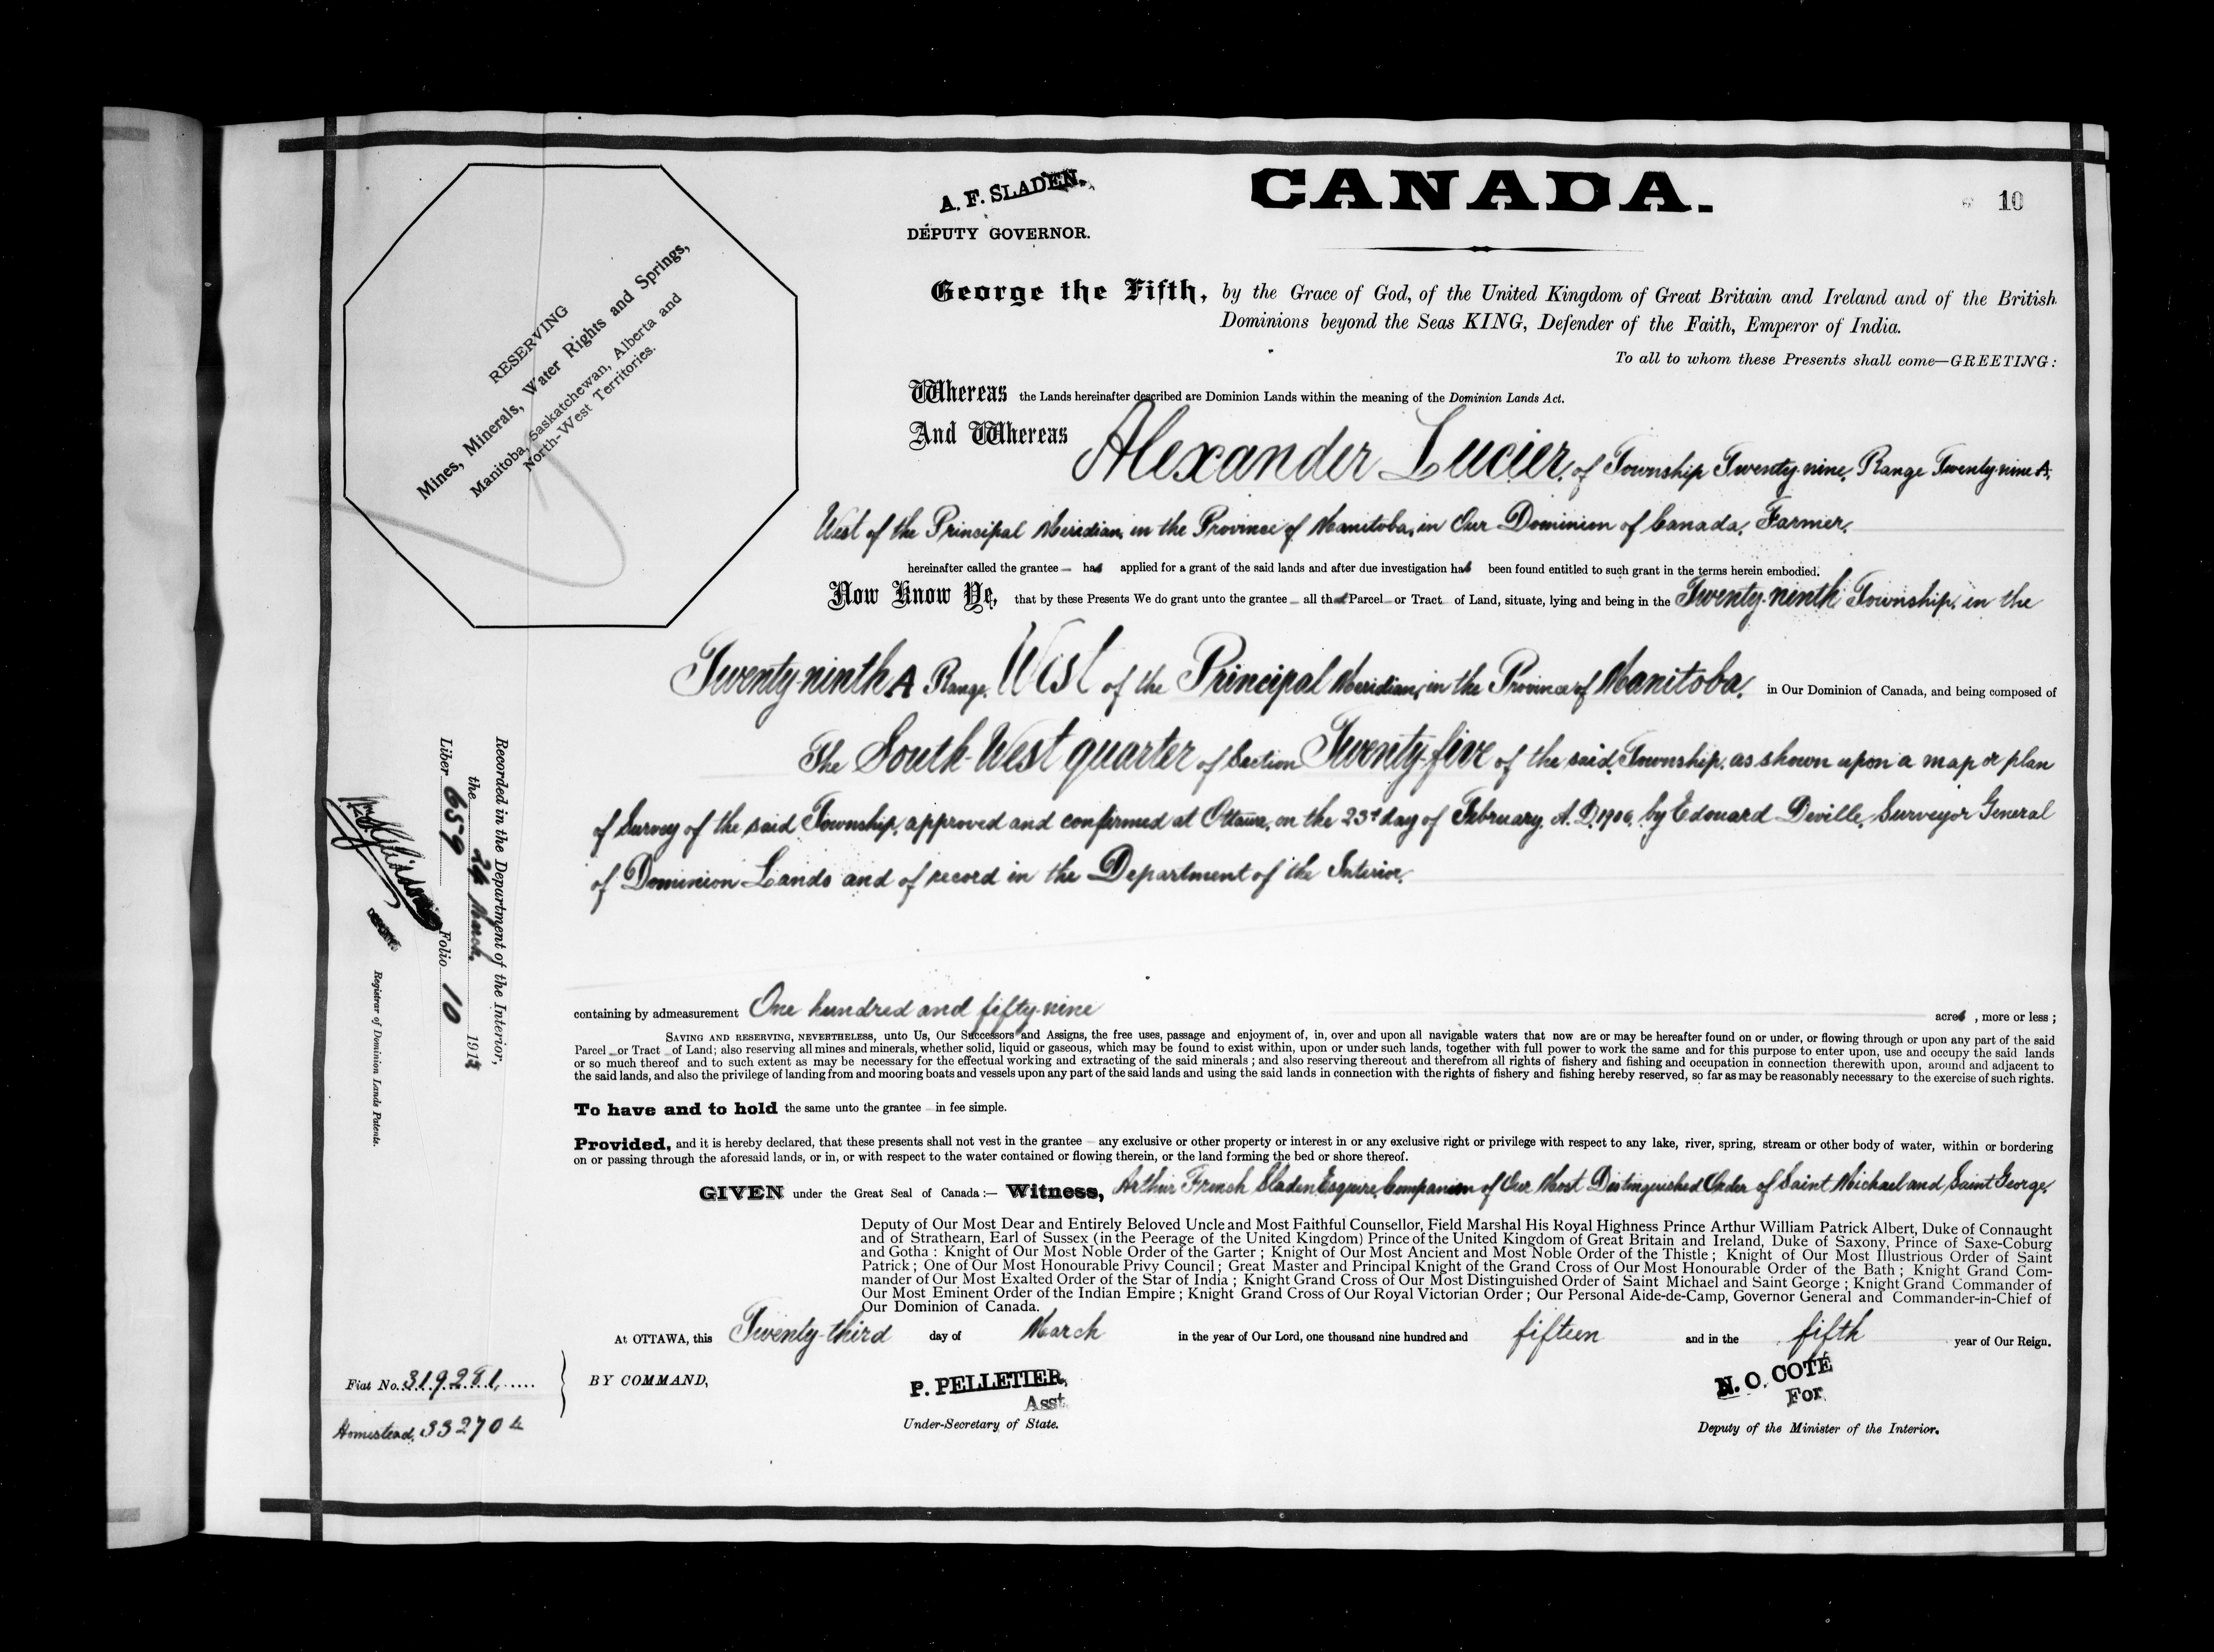 A. F. SLADEN.
DEPUTY GOVERNOR.
CANADA.
10
RESERVING
Mines, Minerals, Water Rights and Springs,
Manitoba, Saskatchewan, Alberta and
North-West Territories.
George the Fifth, by the Grace of God, of the United Kingdom of Great Britain and Ireland and of the British
Dominions beyond the Seas KING, Defender of the Faith, Emperor of India.
To all to whom these Presents shall come—GREETING:
Whereas the Lands hereinafter described are Dominion Lands within the meaning of the Dominion Lands Act.
And Whereas Alexander Lucier, of Township Twenty-nine, Range Twenty-nine A,
West of the Principal Meridian, in the Province of Manitoba, in Our Dominion of Canada, Farmer,
hereinafter called the grantee — has applied for a grant of the said lands and after due investigation has been found entitled to such grant in the terms herein embodied.
Now Know Ye, that by these Presents We do grant unto the grantee — all that Parcel — or Tract of Land, situate, lying and being in the Twenty-ninth Township, in the
Twenty-ninth A Range, West of the Principal Meridian, in the Province of Manitoba, in Our Dominion of Canada, and being composed of
The South-West quarter of Section Twenty-five of the said Township, as shown upon a map or plan
of Survey of the said Township, approved and confirmed at Ottawa, on the 23d day of February, A. D. 1906, by Edouard Deville, Surveyor General
of Dominion Lands and of record in the Department of the Interior,
containing by admeasurement One hundred and fifty-nine acres , more or less ;
SAVING AND RESERVING, NEVERTHELESS, unto Us, Our Successors and Assigns, the free uses, passage and enjoyment of, in, over and upon all navigable waters that now are or may be hereafter found on or under, or flowing through or upon any part of the said
Parcel — or Tract — of Land; also reserving all mines and minerals, whether solid, liquid or gaseous, which may be found to exist within, upon or under such lands, together with full power to work the same and for this purpose to enter upon, use and occupy the said lands
or so much thereof and to such extent as may be necessary for the effectual working and extracting of the said minerals ; and also reserving thereout and therefrom all rights of fishery and fishing and occupation in connection therewith upon, around and adjacent to
the said lands, and also the privilege of landing from and mooring boats and vessels upon any part of the said lands and using the said lands in connection with the rights of fishery and fishing hereby reserved, so far as may be reasonably necessary to the exercise of such rights.
To have and to hold the same unto the grantee — in fee simple.
Provided, and it is hereby declared, that these presents shall not vest in the grantee — any exclusive or other property or interest in or any exclusive right or privilege with respect to any lake, river, spring, stream or other body of water, within or bordering
on or passing through the aforesaid lands, or in, or with respect to the water contained or flowing therein, or the land forming the bed or shore thereof.
GIVEN under the Great Seal of Canada :— Witness, Arthur French Sladen Esquire, Companion of Our Most Distinguished Order of Saint Michael and Saint George,
Deputy of Our Most Dear and Entirely Beloved Uncle and Most Faithful Counsellor, Field Marshal His Royal Highness Prince Arthur William Patrick Albert, Duke of Connaught
and of Strathearn, Earl of Sussex (in the Peerage of the United Kingdom) Prince of the United Kingdom of Great Britain and Ireland, Duke of Saxony, Prince of Saxe-Coburg
and Gotha : Knight of Our Most Noble Order of the Garter ; Knight of Our Most Ancient and Most Noble Order of the Thistle ; Knight of Our Most Illustrious Order of Saint
Patrick ; One of Our Most Honourable Privy Council ; Great Master and Principal Knight of the Grand Cross of Our Most Honourable Order of the Bath ; Knight Grand Com-
mander of Our Most Exalted Order of the Star of India ; Knight Grand Cross of Our Most Distinguished Order of Saint Michael and Saint George ; Knight Grand Commander of
Our Most Eminent Order of the Indian Empire ; Knight Grand Cross of Our Royal Victorian Order ; Our Personal Aide-de-Camp, Governor General and Commander-in-Chief of
Our Dominion of Canada.
At OTTAWA, this Twenty-third day of March in the year of Our Lord, one thousand nine hundred and fifteen and in the fifth year of Our Reign.
BY COMMAND,
P. PELLETIER,
Asst.
Under-Secretary of State.
N. O. COTÉ
For
Deputy of the Minister of the Interior.
Fiat No. 319281
Homestead, 332704
Recorded in the Department of the Interior,
the 24 March, 1915
Liber 659 Folio 10
Registrar of Dominion Lands Patents.